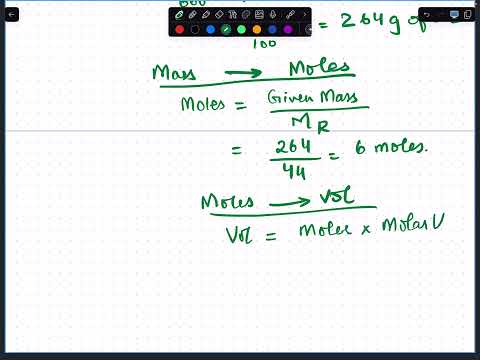 100 = 264 g of
Mass → Moles
Moles = Given Mass
MR
= 264 = 6 moles.
44
Moles → Vol
Vol = Moles × Molar V